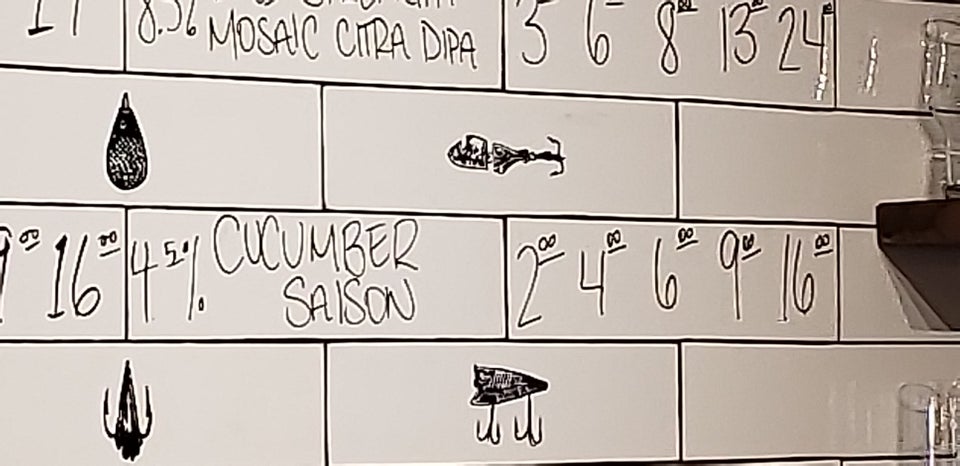 MOSAIC CITRA DIPA 6 8⁰⁰ 13⁰⁰ 24
16⁰⁰ 4.5% CUCUMBER SAISON 2⁰⁰ 4⁰⁰ 6⁰⁰ 9⁰⁰ 16⁰⁰